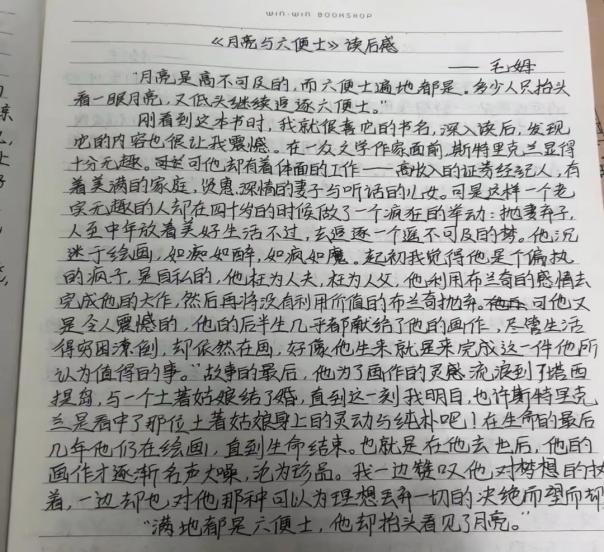 WIN·WIN BOOKSHOP
《月亮与六便士》读后感
——毛姆
"月亮是高不可及的,而六便士遍地都是。多少人只抬头
看一眼月亮,又低头继续追逐六便士。"
刚看到这本书时,我就很喜它的书名,深入读后,发现
它的内容也很让我震憾。在一众文学作家面前,斯特里克兰显得
十分无趣。可他却有着体面的工作——高收入的证券经纪人,有
着美满的家庭,贤惠深情的妻子与听话的儿女。可是这样一个老
实无趣的人却在四十岁的时候做了一个疯狂的举动:抛妻弃子,
人至中年放着美好生活不过,去追逐一个遥不可及的梦。他沉
迷于绘画,如痴如醉,如疯如魔。起初我觉得他是个偏执
的疯子,是自私的,他枉为人夫,枉为人父,他利用布兰奇的感情去
完成他的大作,然后再将没有利用价值的布兰奇抛弃。可他又
是令人震憾的,他的后半生几乎都献给了他的画作,尽管生活
得穷困潦倒,却依然在画,好像他生来就是来完成这一件他所
认为值得的事。"故事的最后,他为了画作的灵感流浪到了塔西
提岛,与一个土著姑娘结了婚,直到这一刻我明白,也许斯特里克
兰是看中了那位土著姑娘身上的灵动与纯朴吧!在生命的最后
几年他仍在绘画,直到生命结束。也就是在他去世后,他的
画作才逐渐名声大噪,沦为珍品。我一边赞叹他对梦想的执
着,一边却也对他那种可以为理想丢弃一切的决绝而望而却
"满地都是六便士,他却抬头看见了月亮。"